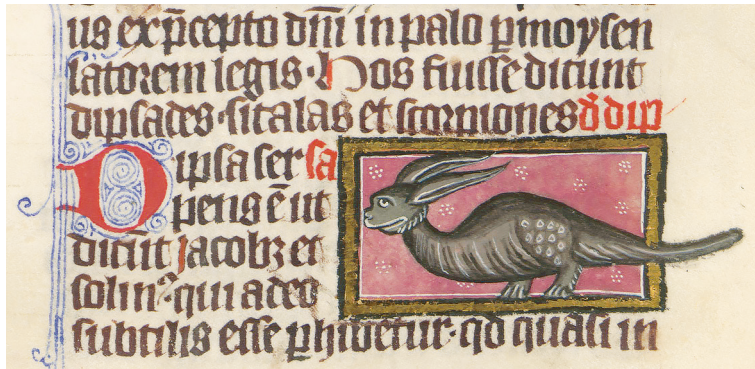 us ex p̄cepto dn̄i in palo ꝑ moysen
latorem legis · hos fuisse dicunt
dipsades · sitalas et scorpiones d̄ dip
Dipsa ser sa
pens ē ut
dicut Jacobꝫ et
solinꝰ qui adeo
subtilis esse ꝑhibetur · qd quasi in